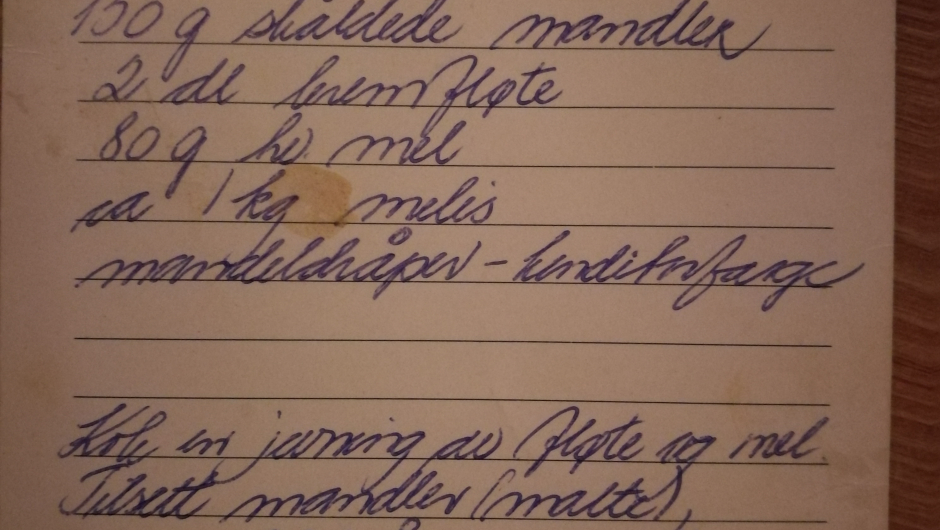 150 g skåldede mandler
2 dl kremfløte
80 g hv. mel
ca 1 kg melis
mandeldråper - konditorfarge
Kok en jevning av fløte og mel.
Tilsett mandler (malte),